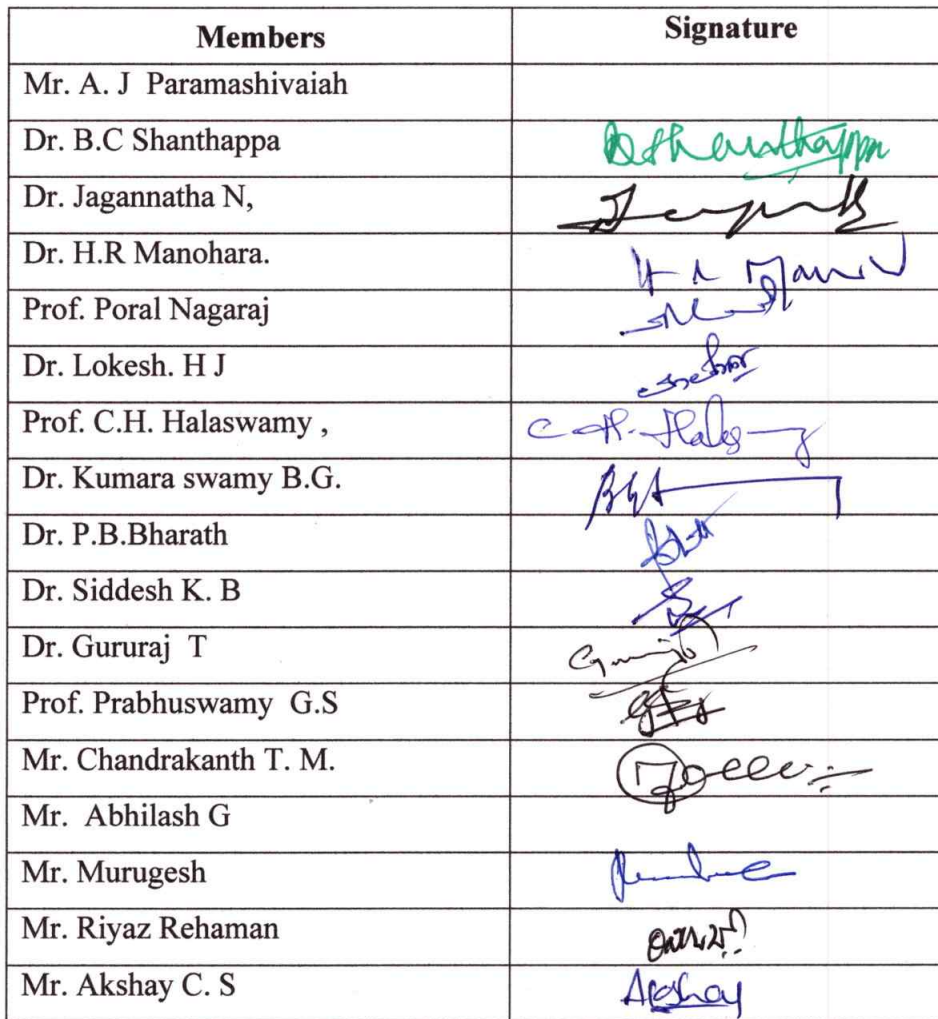 Members Signature
Mr. A. J Paramashivaiah
Dr. B.C Shanthappa
Dr. Jagannatha N,
Dr. H.R Manohara.
Prof. Poral Nagaraj
Dr. Lokesh. H J
Prof. C.H. Halaswamy ,
Dr. Kumara swamy B.G.
Dr. P.B.Bharath
Dr. Siddesh K. B
Dr. Gururaj T
Prof. Prabhuswamy G.S
Mr. Chandrakanth T. M.
Mr. Abhilash G
Mr. Murugesh
Mr. Riyaz Rehaman
Mr. Akshay C. S Akshay